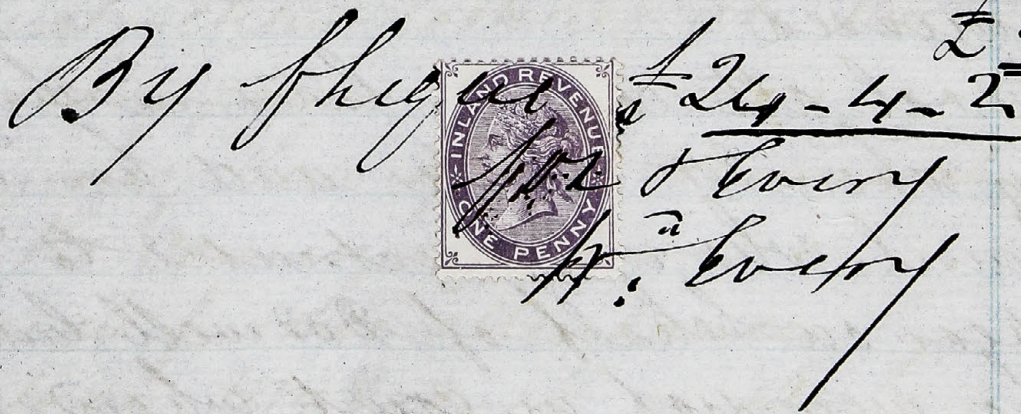 £
By Cheque £24-4-2
INLAND REVENUE
ONE PENNY
for J Every
Every